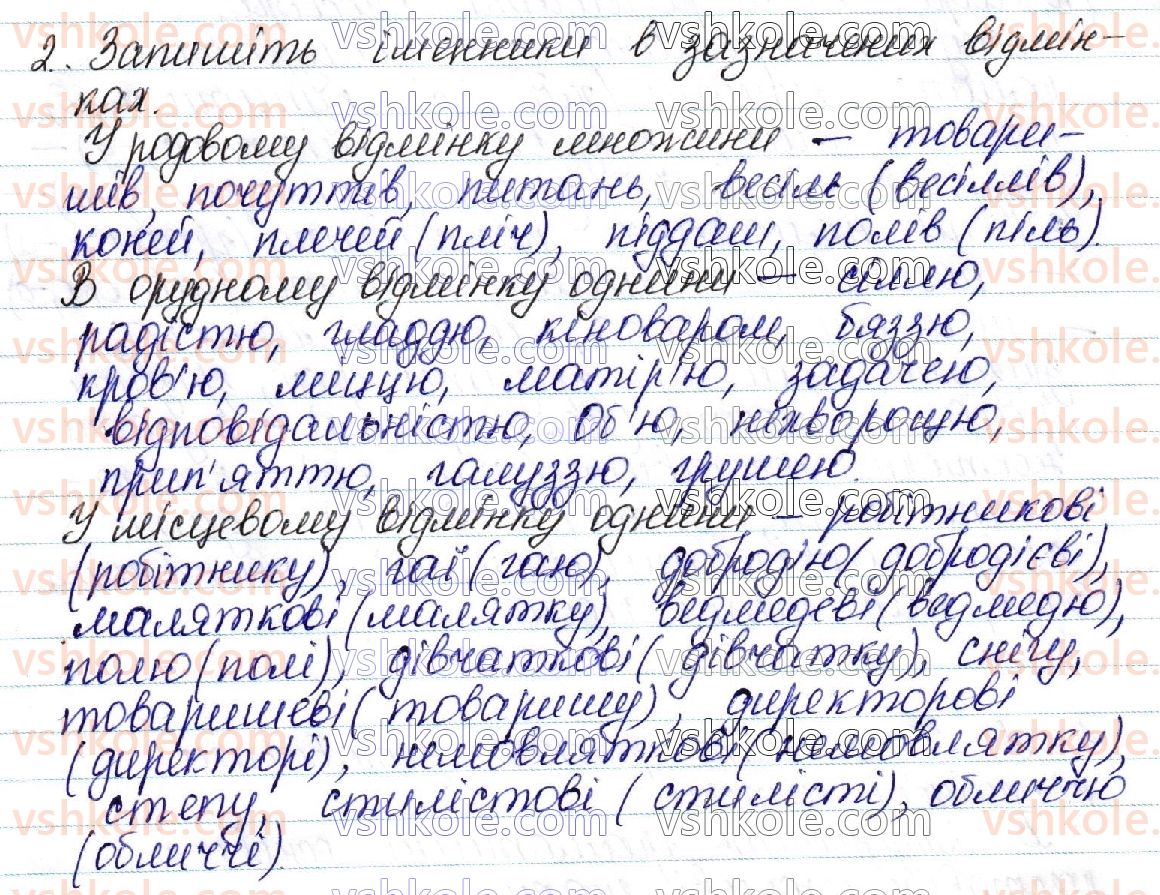 2. Запишіть іменники в зазначених відмін-
ках.
У родовому відмінку множини – товари-
шів, почуттів, питань, весіль (весіллів),
коней, плечей (пліч), піддаш, полів (піль).
В орудному відмінку однини – сіллю,
радістю, гладдю, кіноваром, бяззю,
кров'ю, міццю, матір'ю, задачею,
відповідальністю, Об'ю, нехворощю,
прип'яттю, галуззю, грушею.
У місцевому відмінку однини – робітникові
(робітнику), гаї (гаю), добродію (добродієві),
маляткові (малятку), ведмедеві (ведмедю),
полю (полі), дівчаткові (дівчатку), снігу,
товаришеві (товаришу), директорові
(директорі), немовляткові (немовлятку),
степу, стилістові (стилісті), обличчю
(обличчі).
vshkole.com